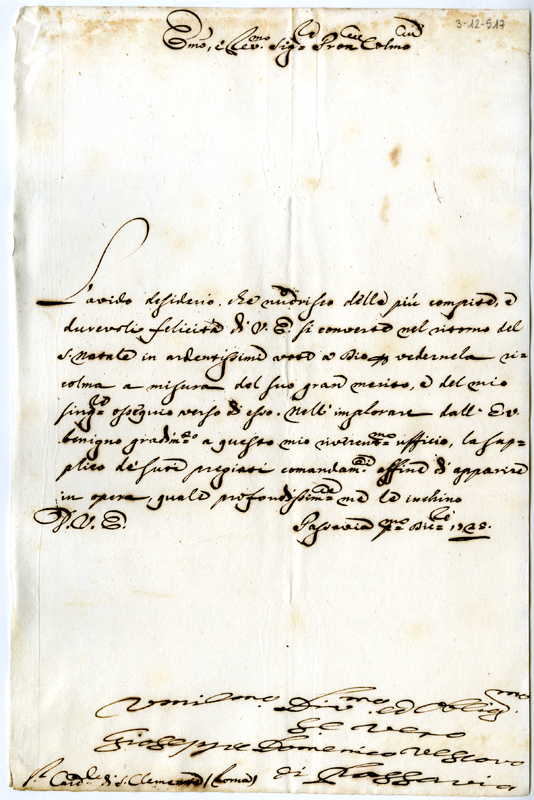 3-12-517
Emo, e Rev.mo Sig.r Pron Colmo
L'avido desiderio, che nudrisco delle più compite, e
durevoli felicità di V. E. si converte nel ritorno del
S. Natale in ardentissimi voti a Dio di vedernela ri=
colma a misura del suo gran merito, e del mio
sing.re ossequio verso di esso. Nell'implorare dall' E.V.
benigno gradim.to a questo mio riverent.mo ufficio, la sup=
plico de' suoi pregiati comandam.ti affine di apparire
in opera, quale profondissim.te me le inchino
D. V. E.
Passavia p.mo Dic.re
Umilmo, Divmo ed Obligmo
Servero
Gioseppe Domenico Vescovo
di Passavia
Card.le di S. Clemente (Roma)